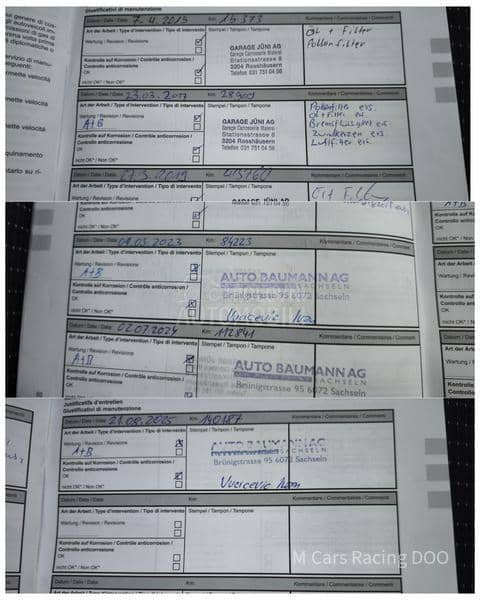 Giustificativi di manutenzione
Datum / Date / Data 7.4.2015 Km 15373 Kommentare / Commentaires / Commenti
Art der Arbeit / Type d'intervention / Tipo di intervento Stempel / Tampon / Tampone
Öl + Filter
Pollenfilter
Wartung / Revision / Revisione
Kontrolle auf Korrosion / Contrôle anticorrosion /
Controllo anticorrosione
OK
nicht OK* / Non OK*
GARAGE JÜNI AG
Garage Carrosserie Malerei
Stationsstrasse 8
3204 Rosshäusern
Telefon 031 751 04 56
Datum / Date / Data 23.03.2017 Km
Kommentare / Commentaires / Commenti
Art der Arbeit / Type d'intervention / Tipo di intervento Stempel / Tampon / Tampone
Wartung / Revision / Revisione
A+B
Kontrolle auf Korrosion / Contrôle anticorrosion /
Controllo anticorrosione
OK
nicht OK* / Non OK*
GARAGE JÜNI AG
Garage Carrosserie Malerei
Stationsstrasse 8
3204 Rosshäusern
Telefon 031 751 04 56
Pollenfilter ers.
Öl + Filter ers.
Bremsflüssigkeit ers.
Zündkerzen ers.
Luftfilter ers.
Datum / Date / Data
Km
Kommentare / Commentaires / Commenti
Art der Arbeit / Type d'intervention / Tipo di intervento Stempel / Tampon / Tampone
mette velocità
quinamento
Kontrolle auf Korrosion / Contrôle anticorrosion /
Controllo anticorrosione
OK
nicht OK* / Non OK*
Datum / Date / Data 01.03.2023 Km 84223 Kommentare / Commentaires / Commenti
Art der Arbeit / Type d'intervention / Tipo di intervento Stempel / Tampon / Tampone
Wartung / Revision / Revisione
A+B
Kontrolle auf Korrosion / Contrôle anticorrosion /
Controllo anticorrosione
OK
nicht OK* / Non OK*
AUTO BAUMANN AG
SACHSELN
Brünigstrasse 95 6072 Sachseln
Datum / Date / Data 02.07.2024 Km 112841 Kommentare / Commentaires / Commenti
Art der Arbeit / Type d'intervention / Tipo di intervento Stempel / Tampon / Tampone
Wartung / Revision / Revisione
A+B
Kontrolle auf Korrosion / Contrôle anticorrosion /
Controllo anticorrosione
AUTO BAUMANN AG
SACHSELN
Brünigstrasse 95 6072 Sachseln
Justificatifs d'entretien
Giustificativi di manutenzione
Datum / Date / Data 21.08.2025 Km 140187 Kommentare / Commentaires / Commenti
Art der Arbeit / Type d'intervention / Tipo di intervento Stempel / Tampon / Tampone
Wartung / Revision / Revisione
A+B
Kontrolle auf Korrosion / Contrôle anticorrosion /
Controllo anticorrosione
OK
nicht OK* / Non OK*
AUTO BAUMANN AG
SACHSELN
Brünigstrasse 95 6072 Sachseln
Datum / Date / Data Km Kommentare / Commentaires / Commenti
Art der Arbeit / Type d'intervention / Tipo di intervento Stempel / Tampon / Tampone
Wartung / Revision / Revisione
Kontrolle auf Korrosion / Contrôle anticorrosion /
Controllo anticorrosione
OK
nicht OK* / Non OK*
Datum / Date / Data Km Kommentare / Commentaires / Commenti
M Cars Racing DOO